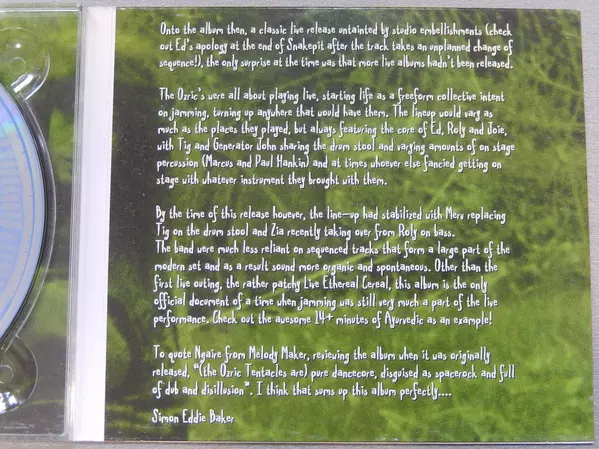 Onto the album then, a classic live release untainted by studio embellishments (check
out Ed's apology at the end of Snakepit after the track takes an unplanned change of
sequence!), the only surprise at the time was that more live albums hadn't been released.
The Ozric's were all about playing live, starting life as a freeform collective intent
on jamming, turning up anywhere that would have them. The lineup would vary as
much as the places they played, but always featuring the core of Ed, Roly and Joie,
with Tig and Generator John sharing the drum stool and varying amounts of on stage
percussion (Marcus and Paul Hankin) and at times whoever else fancied getting on
stage with whatever instrument they brought with them.
By the time of this release however, the line-up had stabilized with Merv replacing
Tig on the drum stool and Zia recently taking over from Roly on bass.
The band were much less reliant on sequenced tracks that form a large part of the
modern set and as a result sound more organic and spontaneous. Other than the
first live outing, the rather patchy Live Ethereal Cereal, this album is the only
official document of a time when jamming was still very much a part of the live
performance. Check out the awesome 14+ minutes of Ayurvedic as an example!
To quote Ngaire from Melody Maker, reviewing the album when it was originally
released, "(the Ozric Tentacles are) pure dancecore, disguised as spacerock and full
of dub and disillusion". I think that sums up this album perfectly....
Simon Eddie Baker